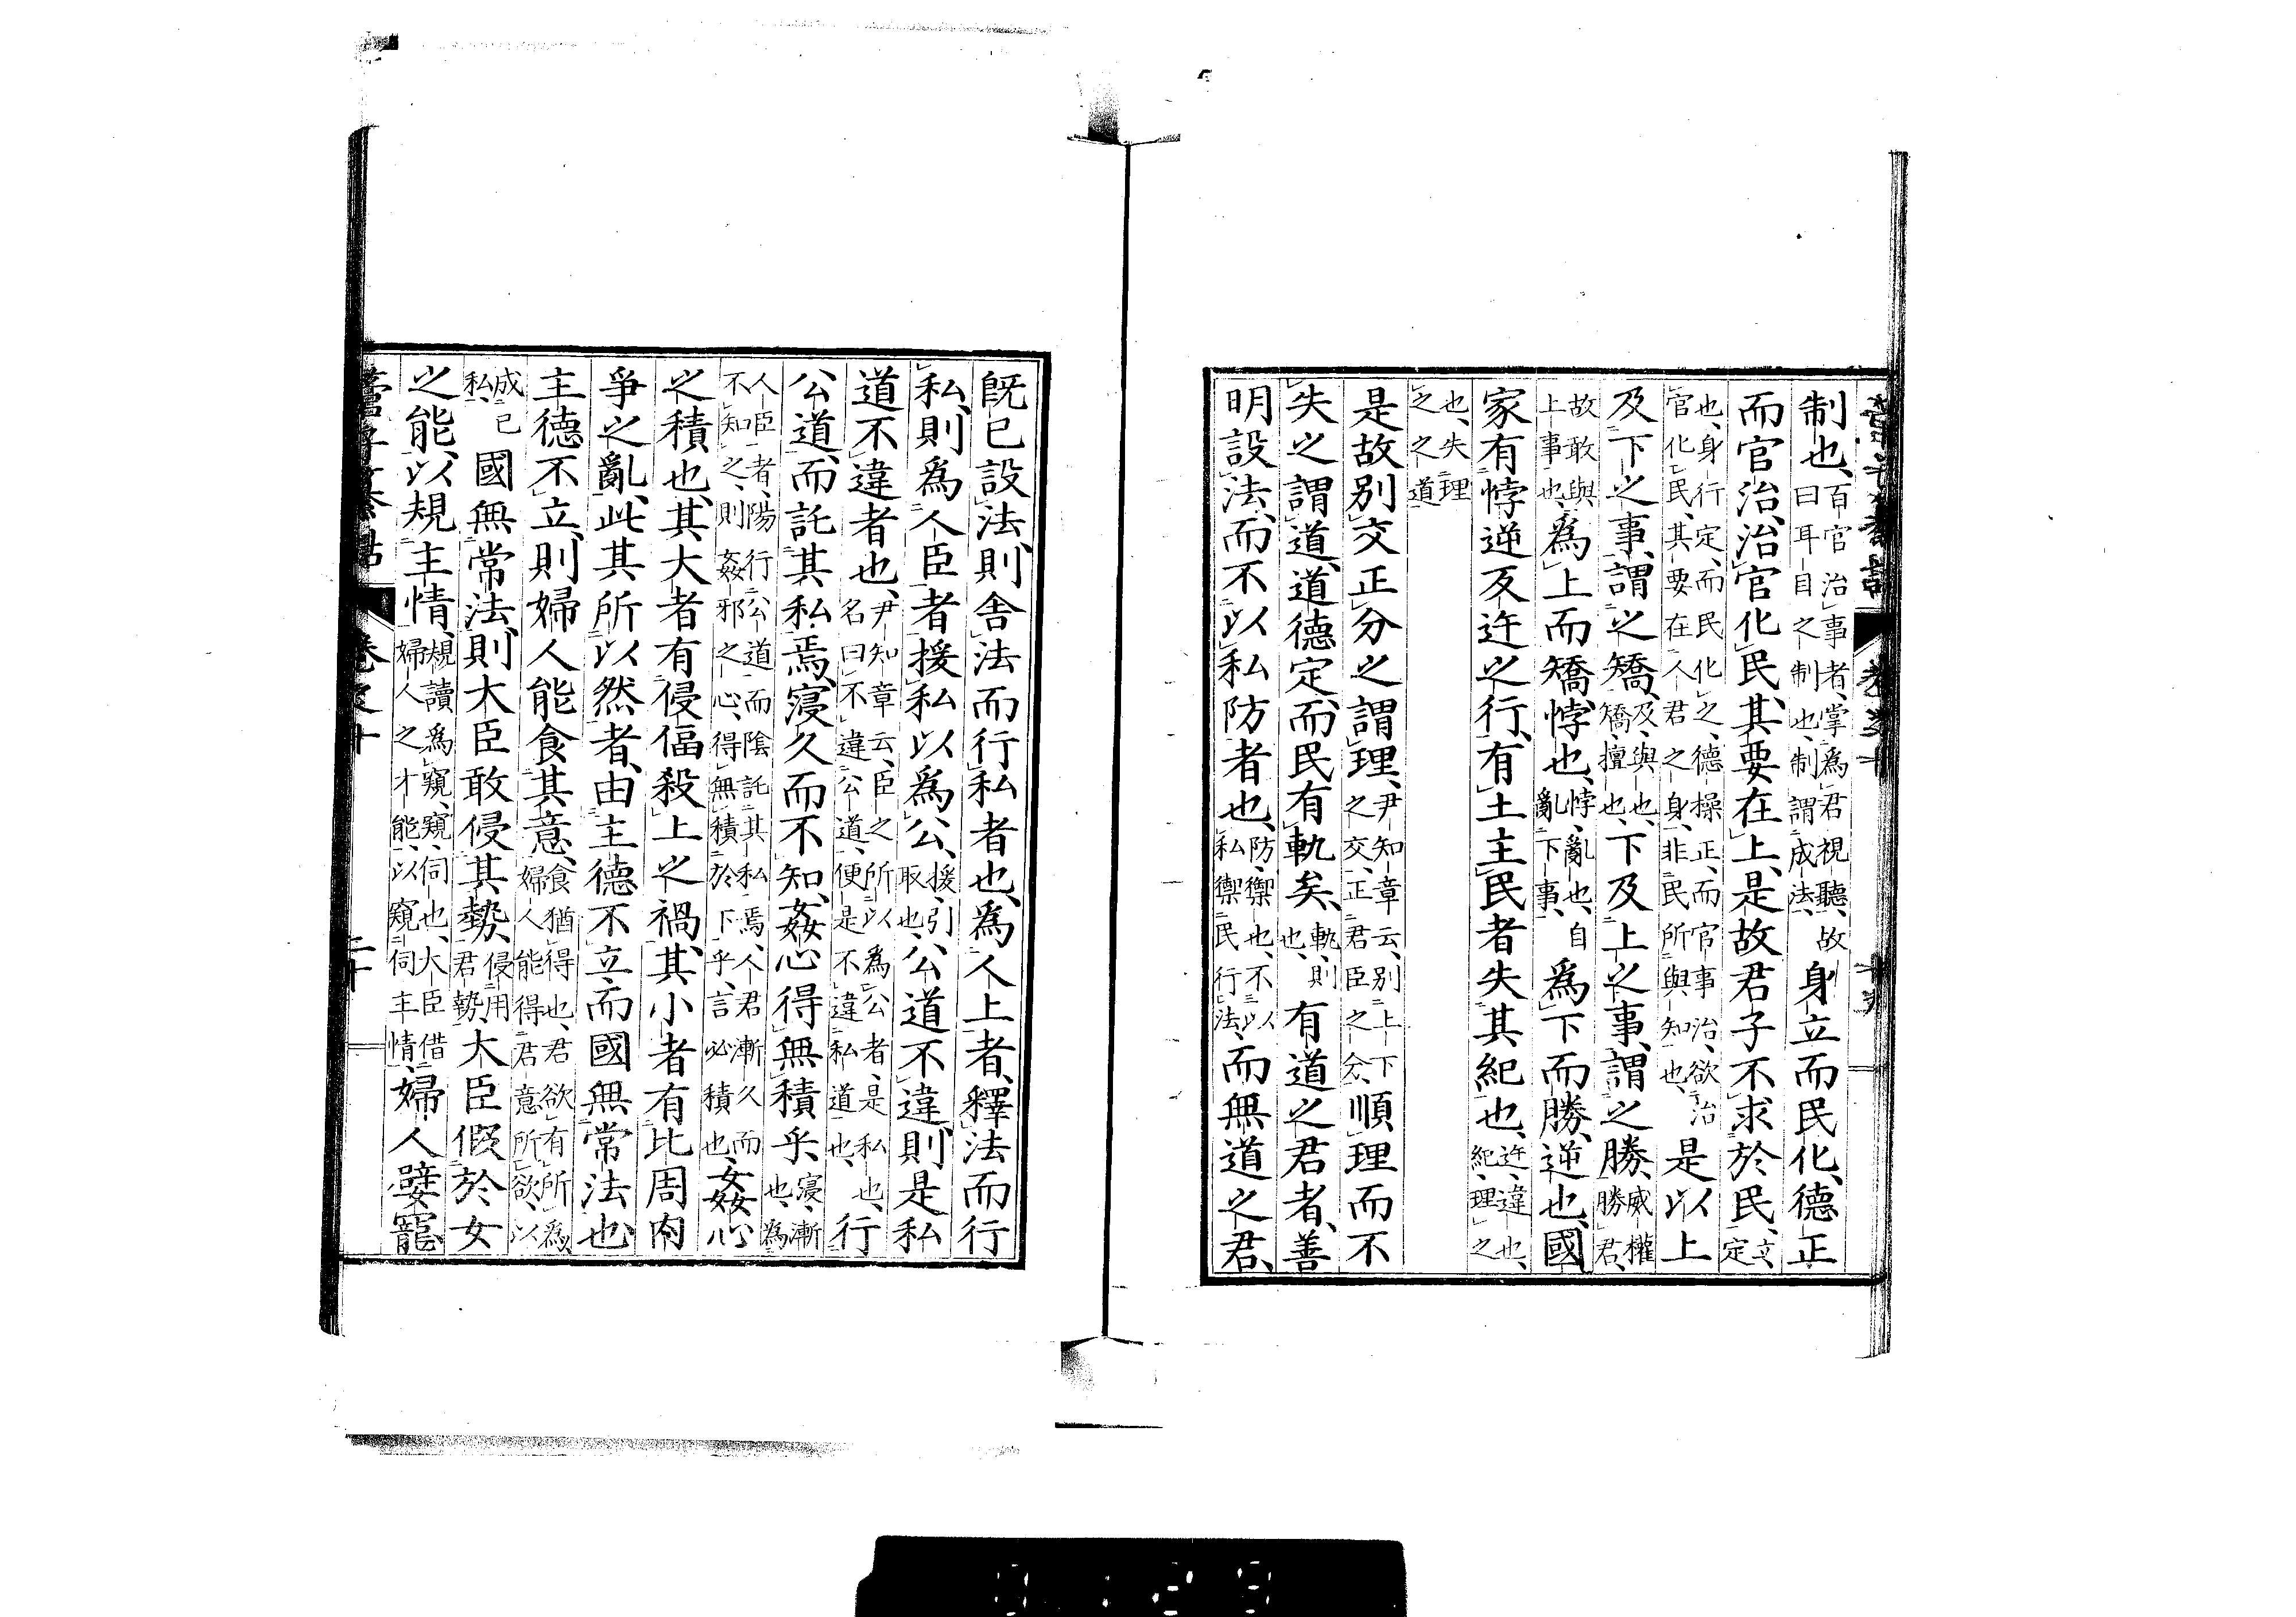 制也、百官治事者、掌爲君視聽、故曰耳目之制也、制謂成法、身立而民化、德正
而官治、治官化民、其要在上、是故君子不求於民、立、定
也、身行定、而民化之、德操正、而官事治、欲治官化民、其要在人君之身、非民所與知也、是以上
及下之事、謂之矯、及、與也、矯、擅也、下及上之事、謂之勝、威權勝君、
故敢與上事也、爲上而矯、悖也、悖、亂也、自亂下事、爲下而勝、逆也、國
家有悖逆反迕之行、有土主民者失其紀也、迕、違也、紀、理之
也、失理之之道
是故別交正分之謂理、尹知章云、別上下之交、正君臣之分、順理而不
失之謂道、道德定、而民有軌矣、軌、則也、有道之君者、善
明設法、而不以私防者也、防、禦也、不以私禦民行法、而無道之君、
既已設法、則舍法而行私者也、爲人上者、釋法而行
私、則爲人臣者援私以爲公、援、引、取也、公道不違、則是私
道不違者也、尹知章云、臣之所以爲公者、是私也、名曰不違公道、便是不違私道也、行
公道、而託其私焉、寖久而不知、姦心得無積乎、寖、漸也、爲
人臣者、陽行公道、而陰託其私焉、人君漸久而不知之、則姦邪之心、得無積於下乎、言必積也、姦心
之積也、其大者有侵偪殺上之禍、其小者有比周內
爭之亂、此其所以然者、由主德不立、而國無常法也、
主德不立、則婦人能食其意、食猶得也、君欲有所爲、婦人能得君意所欲、以
成己私、國無常法、則大臣敢侵其勢、侵用君勢、大臣假於女
之能、以規主情、規讀爲窺、窺、伺也、大臣借婦人之才能、以窺伺主情、婦人嬖寵、